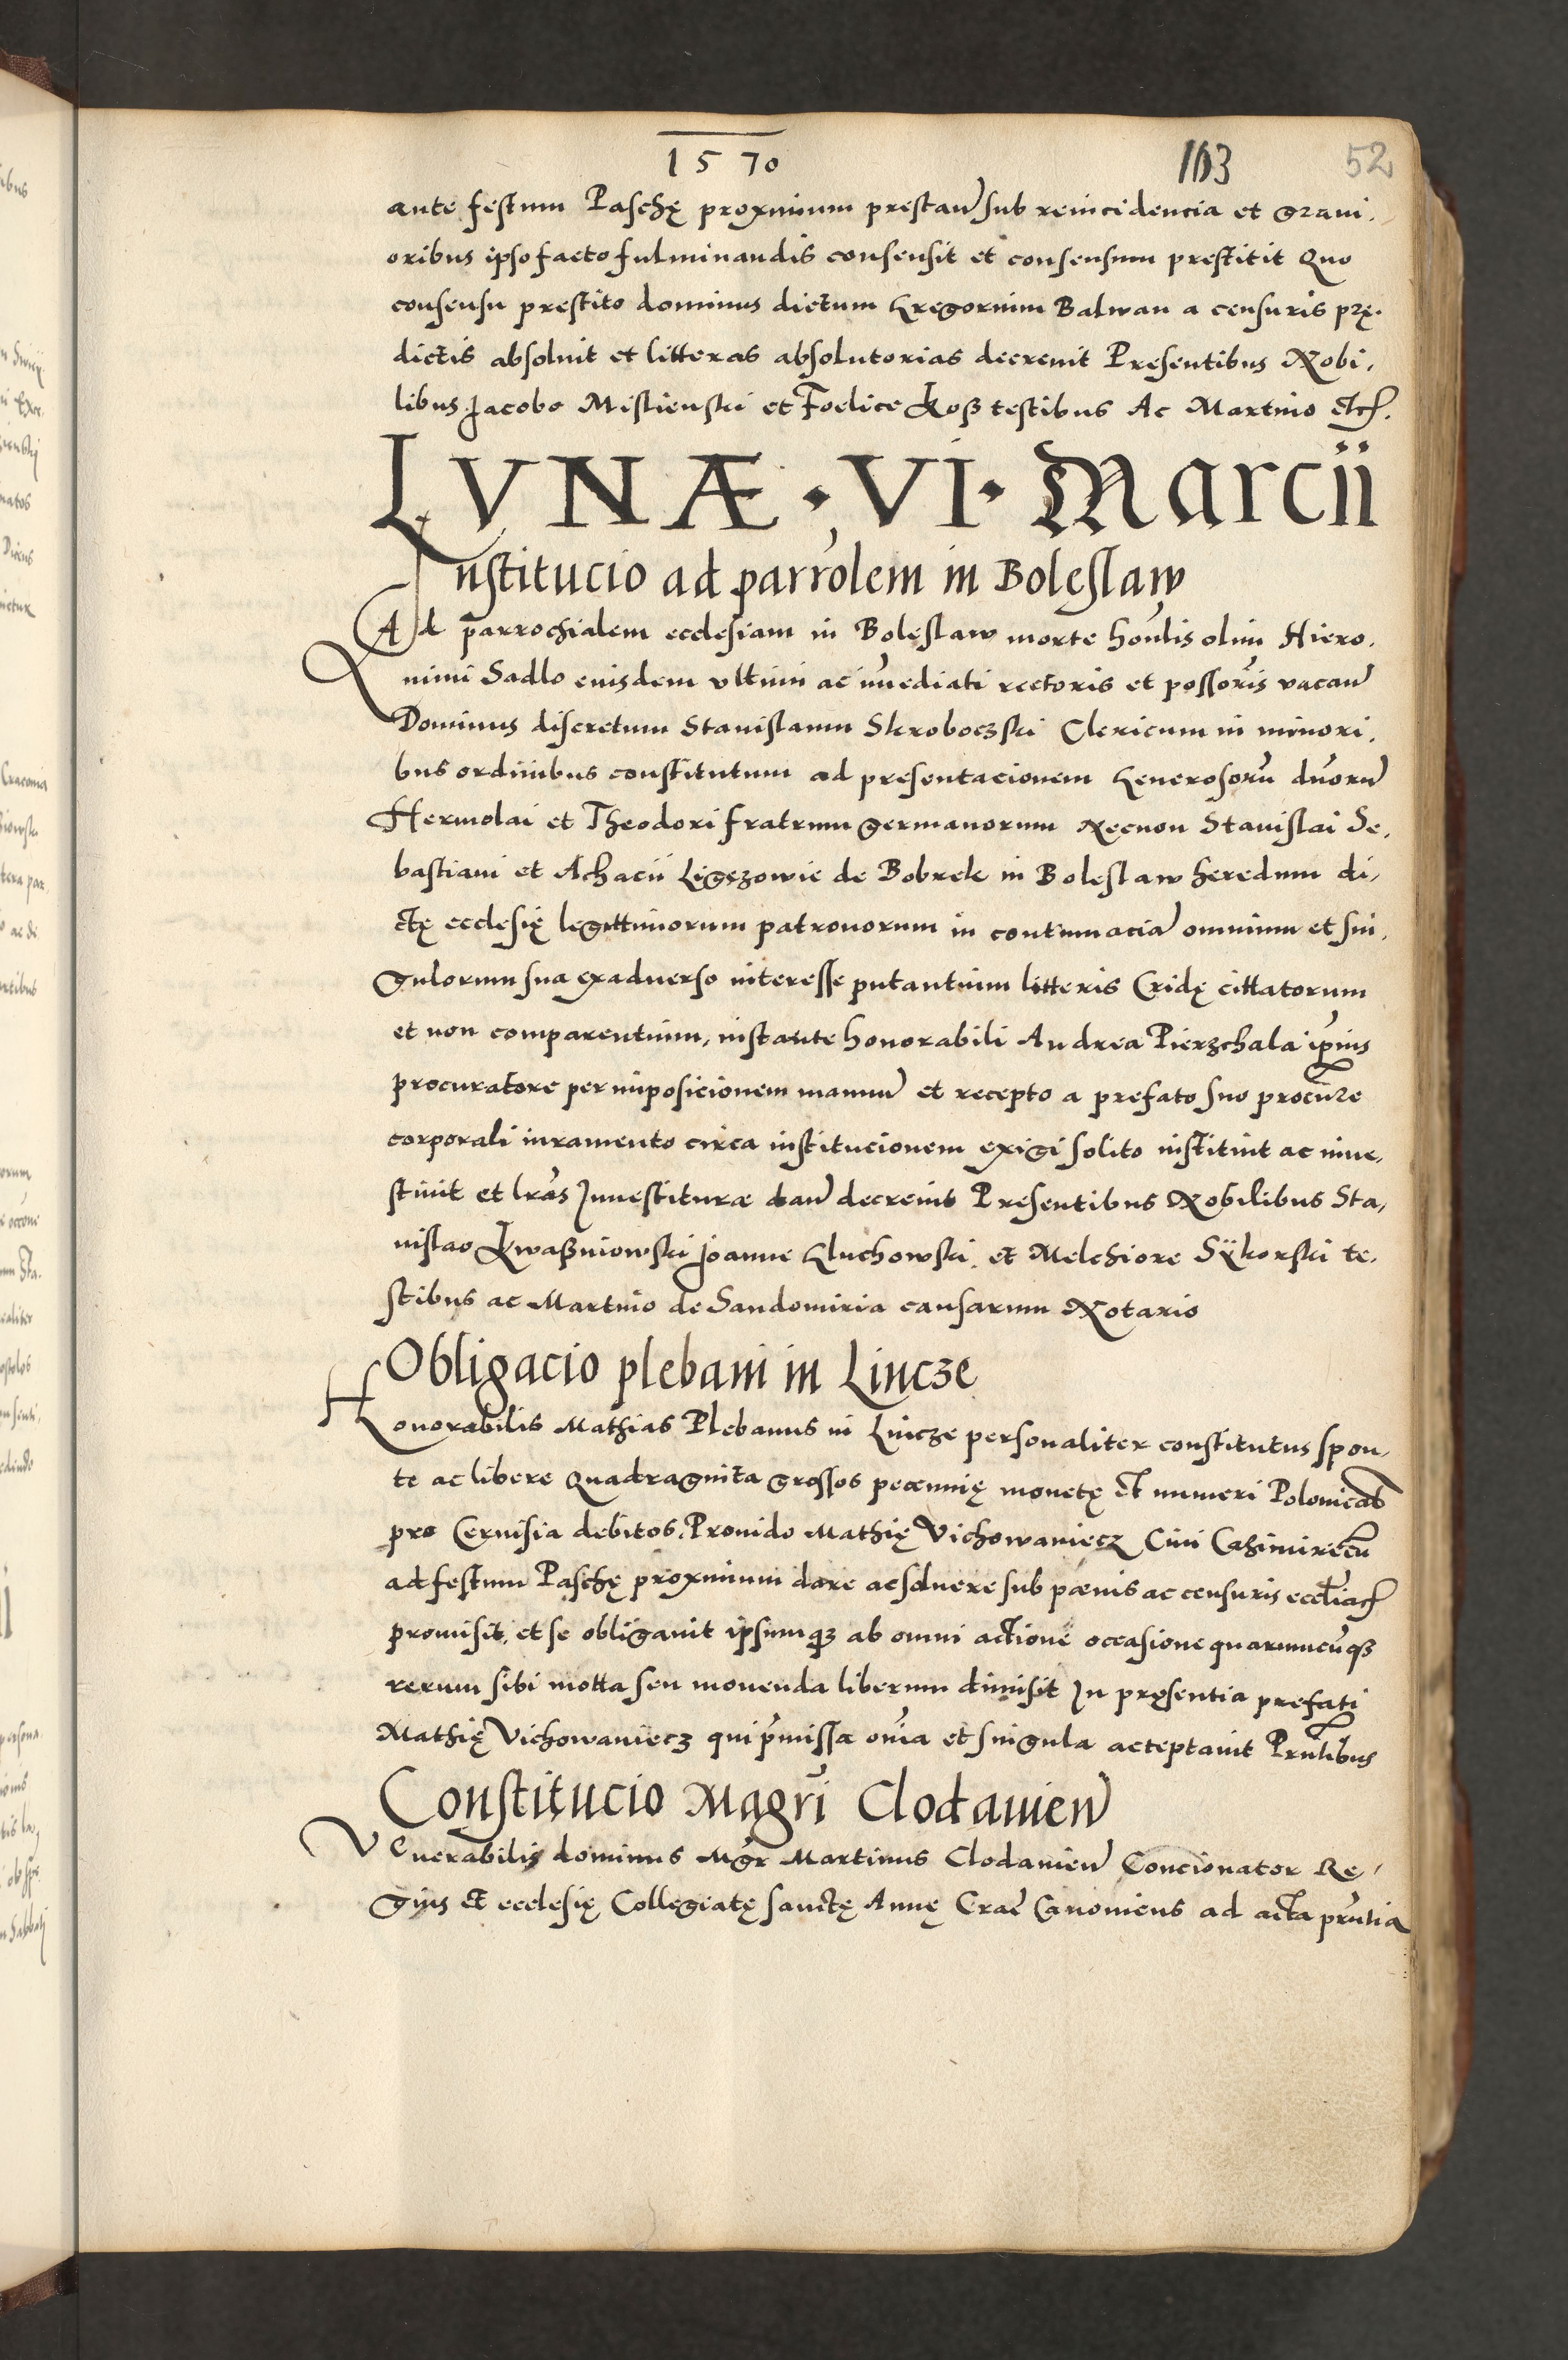 1570
103 52
ante festum Paschę proximum prestan̄ sub reincidencia et gravi,
oribus ipso facto fulminandis consensit et consensum prestitit Quo
consensu prestito dominus dictum Gregorium Balwan a censuris prę,
dictis absolvit et litteras absolutorias decrevit Presentibus Nobi,
libus Jacobo Mistienski et Foelice Koß testibus Ac Martino etc.
LVNÆ · VI · Marcii
Institucio ad parrolem in Boleslaw
Ad parrochialem ecclesiam in Boleslaw morte honlis olim Hiero,
nimi Sadlo euisdem vltimi ac im̄ediati rectoris et possoris vacan̄
Dominus discretum Stanislaum Skroboczski Clericum in minori,
bus ordinibus constitutum ad presentacionem Generosorū dnorū
Hermolai et Theodori fratrum germanorum Necnon Stanislai Se,
bastiani et Achacii Ligęzowie de Bobrek in Boleslaw heredum di,
ctę ecclesię legittimorum patronorum in contumaciā omnium et sin,
gulorum sua exadverso interesse putantium litteris Cridę cittatorum
et non comparentium, instante honorabili Andrea Pierzchala ip̄ius
procuratore per imposicionem manuū et recepto a prefato suo procūre
corporali iuramento circa institucionem exigi solito instituit ac inue,
stiuit et lrās Inuestituræ dan̄ decreuit Presentibus Nobilibus Sta,
nislao Kwaßniowski Joanne Gluchowski et Melchiore Sÿkorski te,
stibus ac Martino de Sandomiria causarum Notario
Obligacio plebani in Lincze
Honorabilis Mathias Plebanus in Lincze personaliter constitutus spon,
te ac libere Quadraginta grossos pecunię monetę et numeri Polonicał
pro Cervisia debitos Provido Mathię Vichowaniecz Civi Casimiriēn
ad festum Paschę proximum dare ac solvere sub pænis ac censuris ecclīacis
promisit, et se obligavit ipsumqz ab omni actione occasione quarumcūqz
rerum sibi motta seu mouenda liberum dimisit In presentia prefati
Mathię Vichowaniecz qui p̄missa om̄ia et singula acceptavit Prn̄tibus
Constitucio Magrī Clodawien̄
Venerabilis dominus Mgr Martinus Clodavien̄ Concionator Re,
gius et ecclesię Collegiatę sanctę Annę Crac̄ Canonicus ad acta prn̄tia